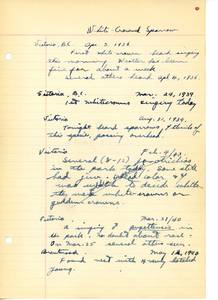 White-Crowned Sparrow
Victoria, B.C. Apr. 2, 1936
First white crown heard singing
this morning. Weather has been
fine for about a week
Several others heard Apr 4, 1936.
Victoria, B.C. Mar. 24, 1939
1st white crowns singing today
Victoria Aug. 31, 1939.
Tonight heard sparrows, I think of
this species, passing overhead
Victoria Feb. 9/40
Several (8-12) zonotrichias
in the park today. Some still
had
was unable to decide whether
they were white-crowns or
golden crowns.
Victoria Mar. 23/40
A singing in
the park. No doubt about race.
On Mar. 25 several others seen.
May 12, 1940
Found nest with 4 newly hatched
young.